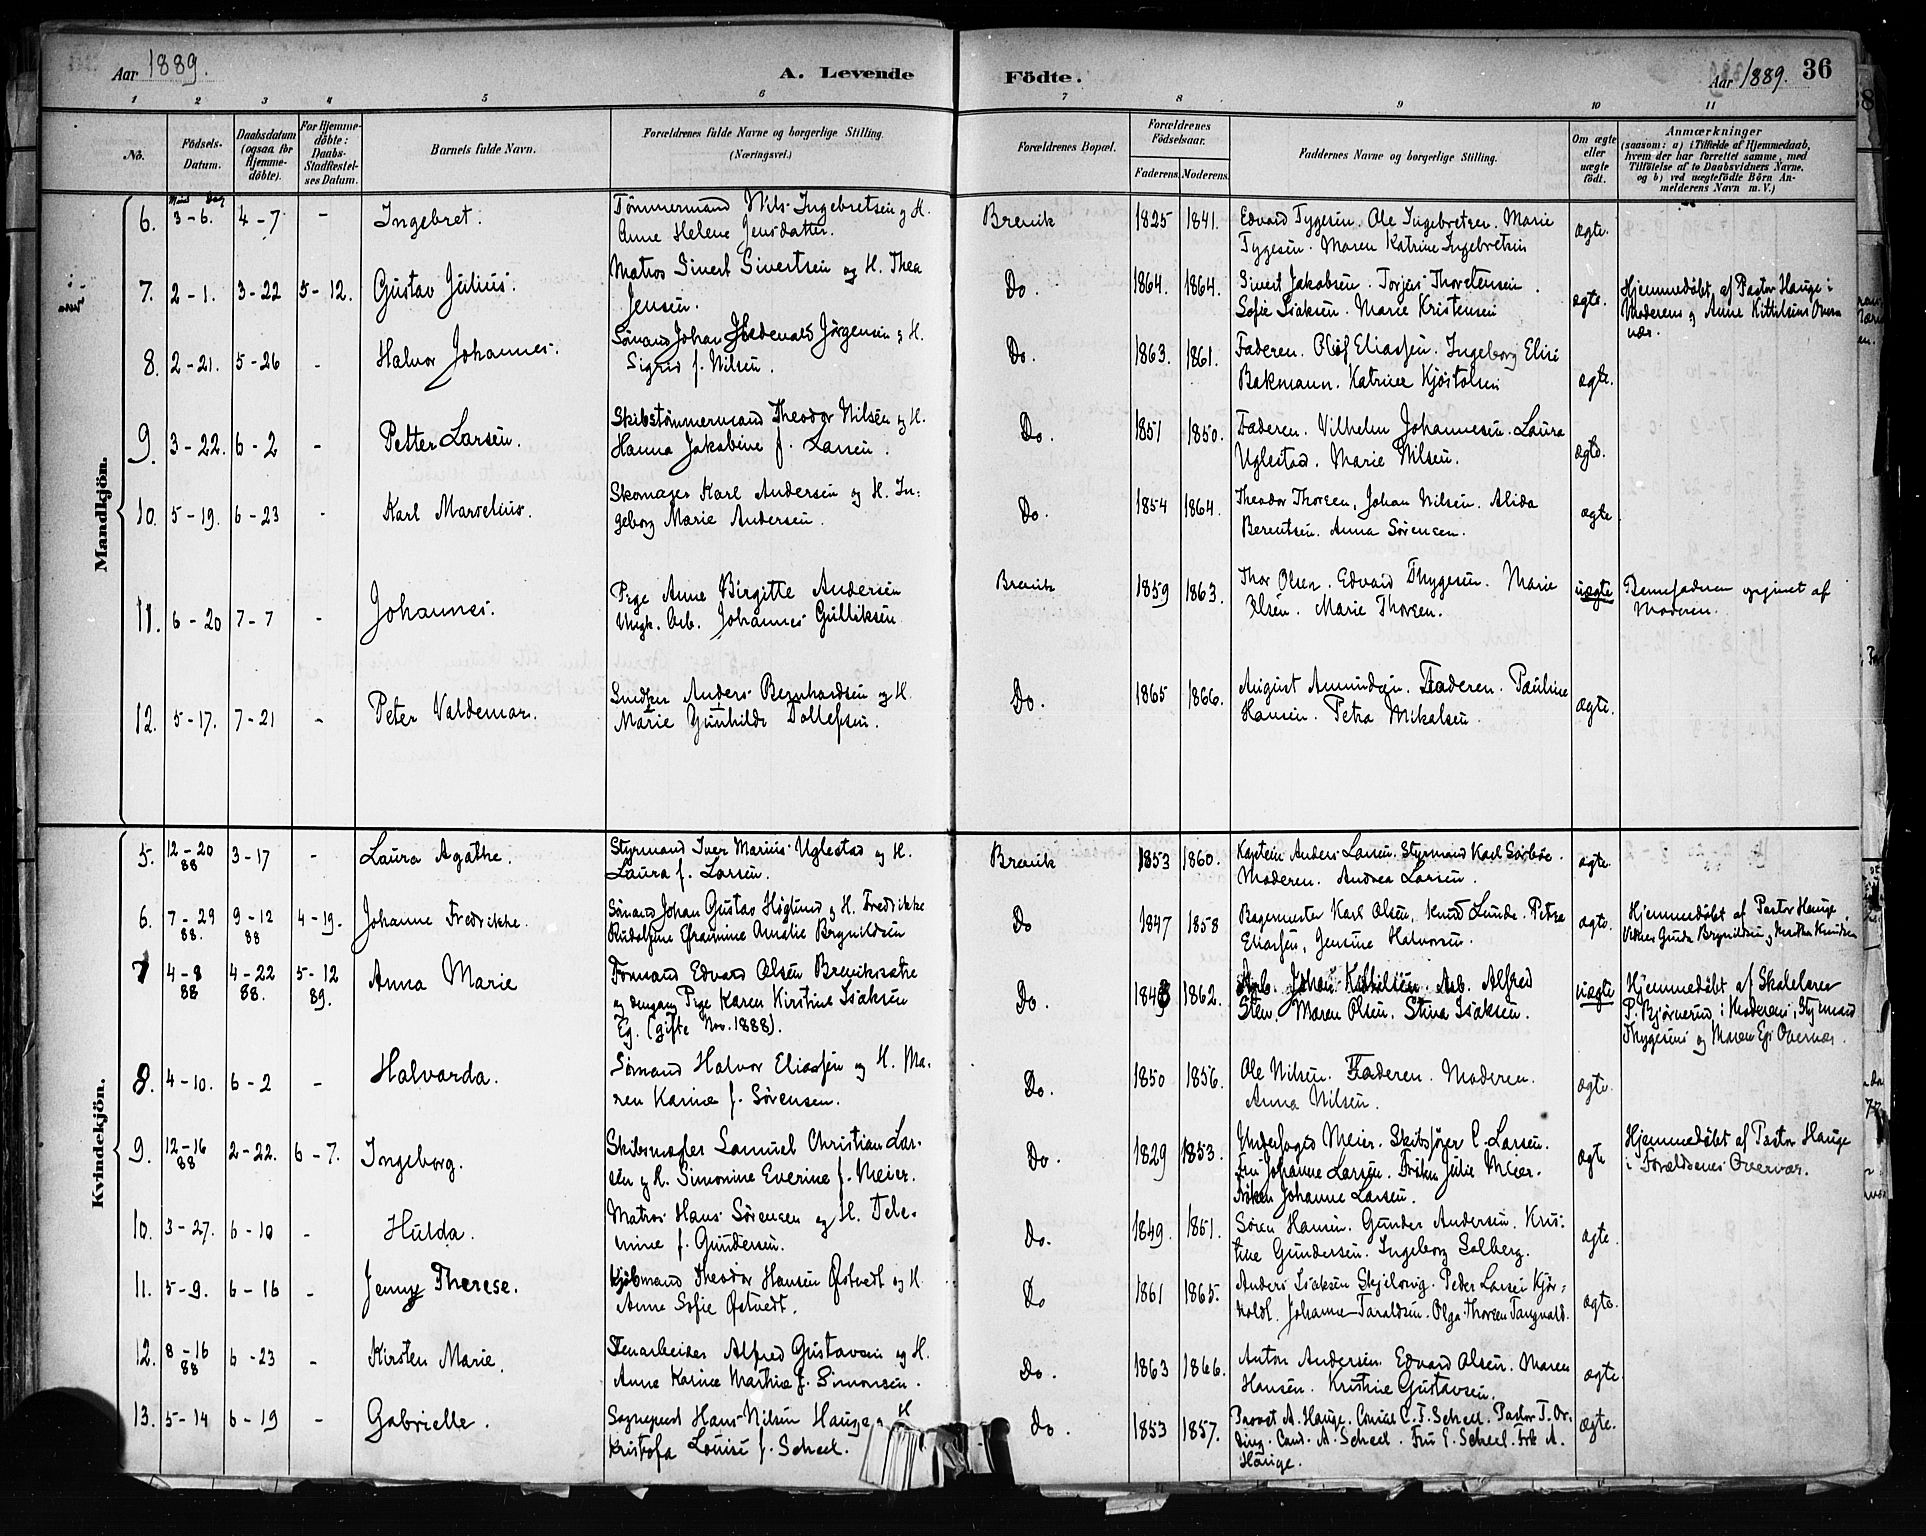 Aar 1889. A. Levende Födte. Aar 1889. 36
1 2 3 4 5 6 7 8 9 10 11
No. Födsels-Datum. Daabsdatum (ogsaa for Hjemme-döbte). For Hjemme-döbte: Daabs-Stadfæstel-ses Datum. Barnets fulde Navn. Forældrenes fulde Navne og borgerlige Stilling. (Næringsvei.) Forældrenes Bopæl. Forældrenes Födselsaar. Faderens. Moderens. Faddernes Navne og borgerlige Stilling. Om ægte eller uægte födt. Anmærkninger (saasom: a) i Tilfælde af Hjemmedaab, hvem der har forrettet samme, med Tilföielse af to Daabsvidners Navne. og b) ved uægtefödte Börn An-melderens Navn m. V.)
Mandkjön.
Maan Dag
6. 3-6. 4-7 - Ingebret. Tömmermand Nils Ingebretsen og H. Brevik 1825 1841. Edvard Tygesen. Ole Ingebretsen. Marie ægte.
Anne Helene Jensdatter. Tygesen. Maren Katrine Ingebretsen
7. 2-1. 3-22 5-12. Gustav Julius. Matros Sivert Sivertsen og H. Thea Do 1864. 1864. Sivert Jakobsen. Torjus Thorstensen. ægte. Hjemmedøbt af Pastor Hauge i
Jensen. Sofie Isaksen. Marie Kristensen Moderens og Anne Kittilsens Overvær.
8. 2-21. 5-26 - Halvor Johannes. Sömand Johan Hedevald Jörgensen og H. Do. 1863. 1861. Faderen. Olof Eliassen. Ingeborg Elise
Sigrid f. Nilsen. Bakmann. Katrine Kjöstolsen ægte.
9. 3-22. 6-2 - Petter Larsen. Skibstömmermand Theodor Nilsen og H. Do. 1851 1850. Faderen. Vilhelm Johannesen. Laura
Hanna Jakobine f. Larsen. Uglestad. Marie Nilsen. ægte.
10. 5-19. 6-23 - Karl Marselius. Skomager Karl Andersen og H. In- Do. 1854 1864. Theodor Thorsen, Johan Nilsen. Alida ægte
geborg Marie Andersen. Berentsen. Anna Sörensen.
11. 6-20 7-7 - Johannes. Pige Anne Birgitte Andersen Brevik 1859 1863. Thor Olsen. Edvard Thygesen. Marie uægte Barnefaderen opgivet af
Ungk. Arb. Johannes Gulliksen Olsen. Marie Thorsen. Moderen.
12. 5-17. 7-21 - Peter Valdemar. Snedker Anders Bernhardsen og H. Do. 1865 1866. August Amundsen. Faderen. Pauline ægte.
Marie Gunhilde Tollefsen. Hansen. Petra Mikalsen.
Kvindekjön.
5. 12-20 88 3-17 - Laura Agathe. Styrmand Iver Marius Uglestad og H. Brevik 1853 1860. Kaptein Anders Larsen. Styrmand Karl Sörböe. ægte
Laura f. Larsen. Moderen. Andrea Larsen.
6. 7-29 88. 9-12 88 4-19. Johanne Fredrikke. Sömand Johan Gustav Höglund og H. Fredrikke Do 1847 1858 Bagermester Karl Olsen, Knud Lunde. Petra ægte. Hjemmedøbt af Pastor Hauge,
Rudolfine Efraimine Amalie Brynildsen Eliassen, Jensine Halvorsen. Vidner Gurda Brynildsen og Martha Knudsen
7 4-8 88 4-22 88. 5-12 89. Anna Marie Formand Edvard Olsen Breviksstrø Do. 1848 1862. Arb. Johan Kittilsen. Arb. Alfred uægte Hjemmedøbt af Skolelærer
og dengang Pige Karen Kirstine Isaksen Sten. Maren Olsen. Stina Isaksen. P. Bjørnerud i Moderens, Styrmand
Eg. (gifte Nov. 1888). Thygesens og Maren Egs Overvær.
8. 4-10. 6-2 - Halvarda. Sömand Halvor Eliassen og H. Ma- Do. 1850 1856. Ole Nilsen. Faderen. Moderen. ægte.
ren Karine f. Sörensen. Anna Nilsen.
9. 12-16 88 2-22. 6-7. Ingeborg. Skibsmægler Samuel Christian Lar- Do. 1829 1853. Underfoged Meier. Skibsfører C. Larsen. ægte Hjemmedøbt af Pastor Hauge
sen og H. Simonine Everine f. Meier. Fru Johanne Larsen. Frøken Julie Meier. i Forældrenes Overvær.
Frøken Johanne Larsen.
10. 3-27. 6-10 - Hulda. Matros Hans Sörensen og H. Tele- Do. 1849. 1851. Sören Hansen. Gunder Andersen. Kris- ægte.
mine f. Gundersen. tine Gundersen. Ingeborg Solberg.
11. 5-9. 6-16 - Jenny Therese. Kjöbmand Theodor Hansen Östvedt og H. Do 1861 1865. Anders Isaksen Skjelovig. Peder Larsen Kjör- ægte.
Anne Sofie Östvedt. holdt. Johanne Taraldsen. Olga Thorsen Tangvald.
12. 8-16 88 6-23 - Kirsten Marie. Stenarbeider Alfred Gustavsen og H. Do. 1863 1866. Anton Andersen. Edvard Olsen. Maren ægte.
Anne Karine Marthie f. Simonsen. Hansen. Kristine Gustavsen.
13. 5-14 6-19 - Gabrielle. Sogneprest Hans Nilsen Hauge og H Do. 1853 1857. Provst A. Hauge. Consul C. F. Scheel. Pastor T. Or- ægte.
Kristofa Louise f. Scheel. ding. Cand. A. Scheel. Fru E. Scheel. Frk A.
Hauge.